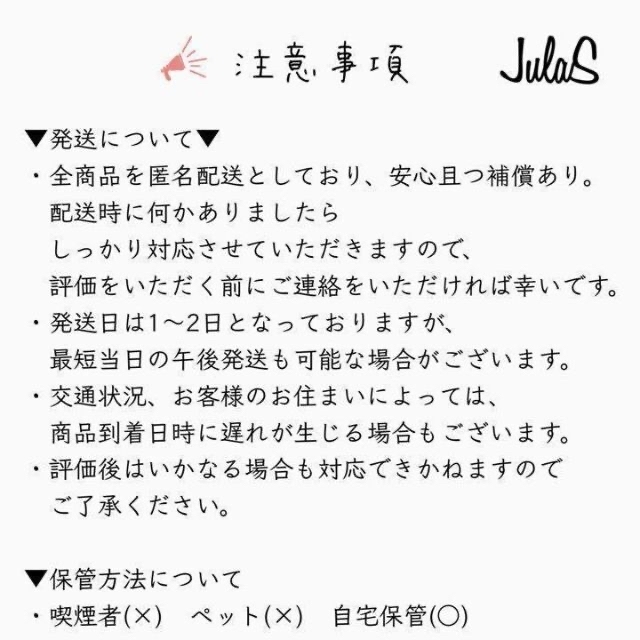 注意事項
JulaS
▼発送について▼
・全商品を匿名配送としており、安心且つ補償あり。
配送時に何かありましたら
しっかり対応させていただきますので、
評価をいただく前にご連絡をいただければ幸いです。
・発送日は1〜2日となっておりますが、
最短当日の午後発送も可能な場合がございます。
・交通状況、お客様のお住まいによっては、
商品到着日時に遅れが生じる場合もございます。
・評価後はいかなる場合も対応できかねますので
ご了承ください。
▼保管方法について
・喫煙者(×)　ペット(×)　自宅保管(○)